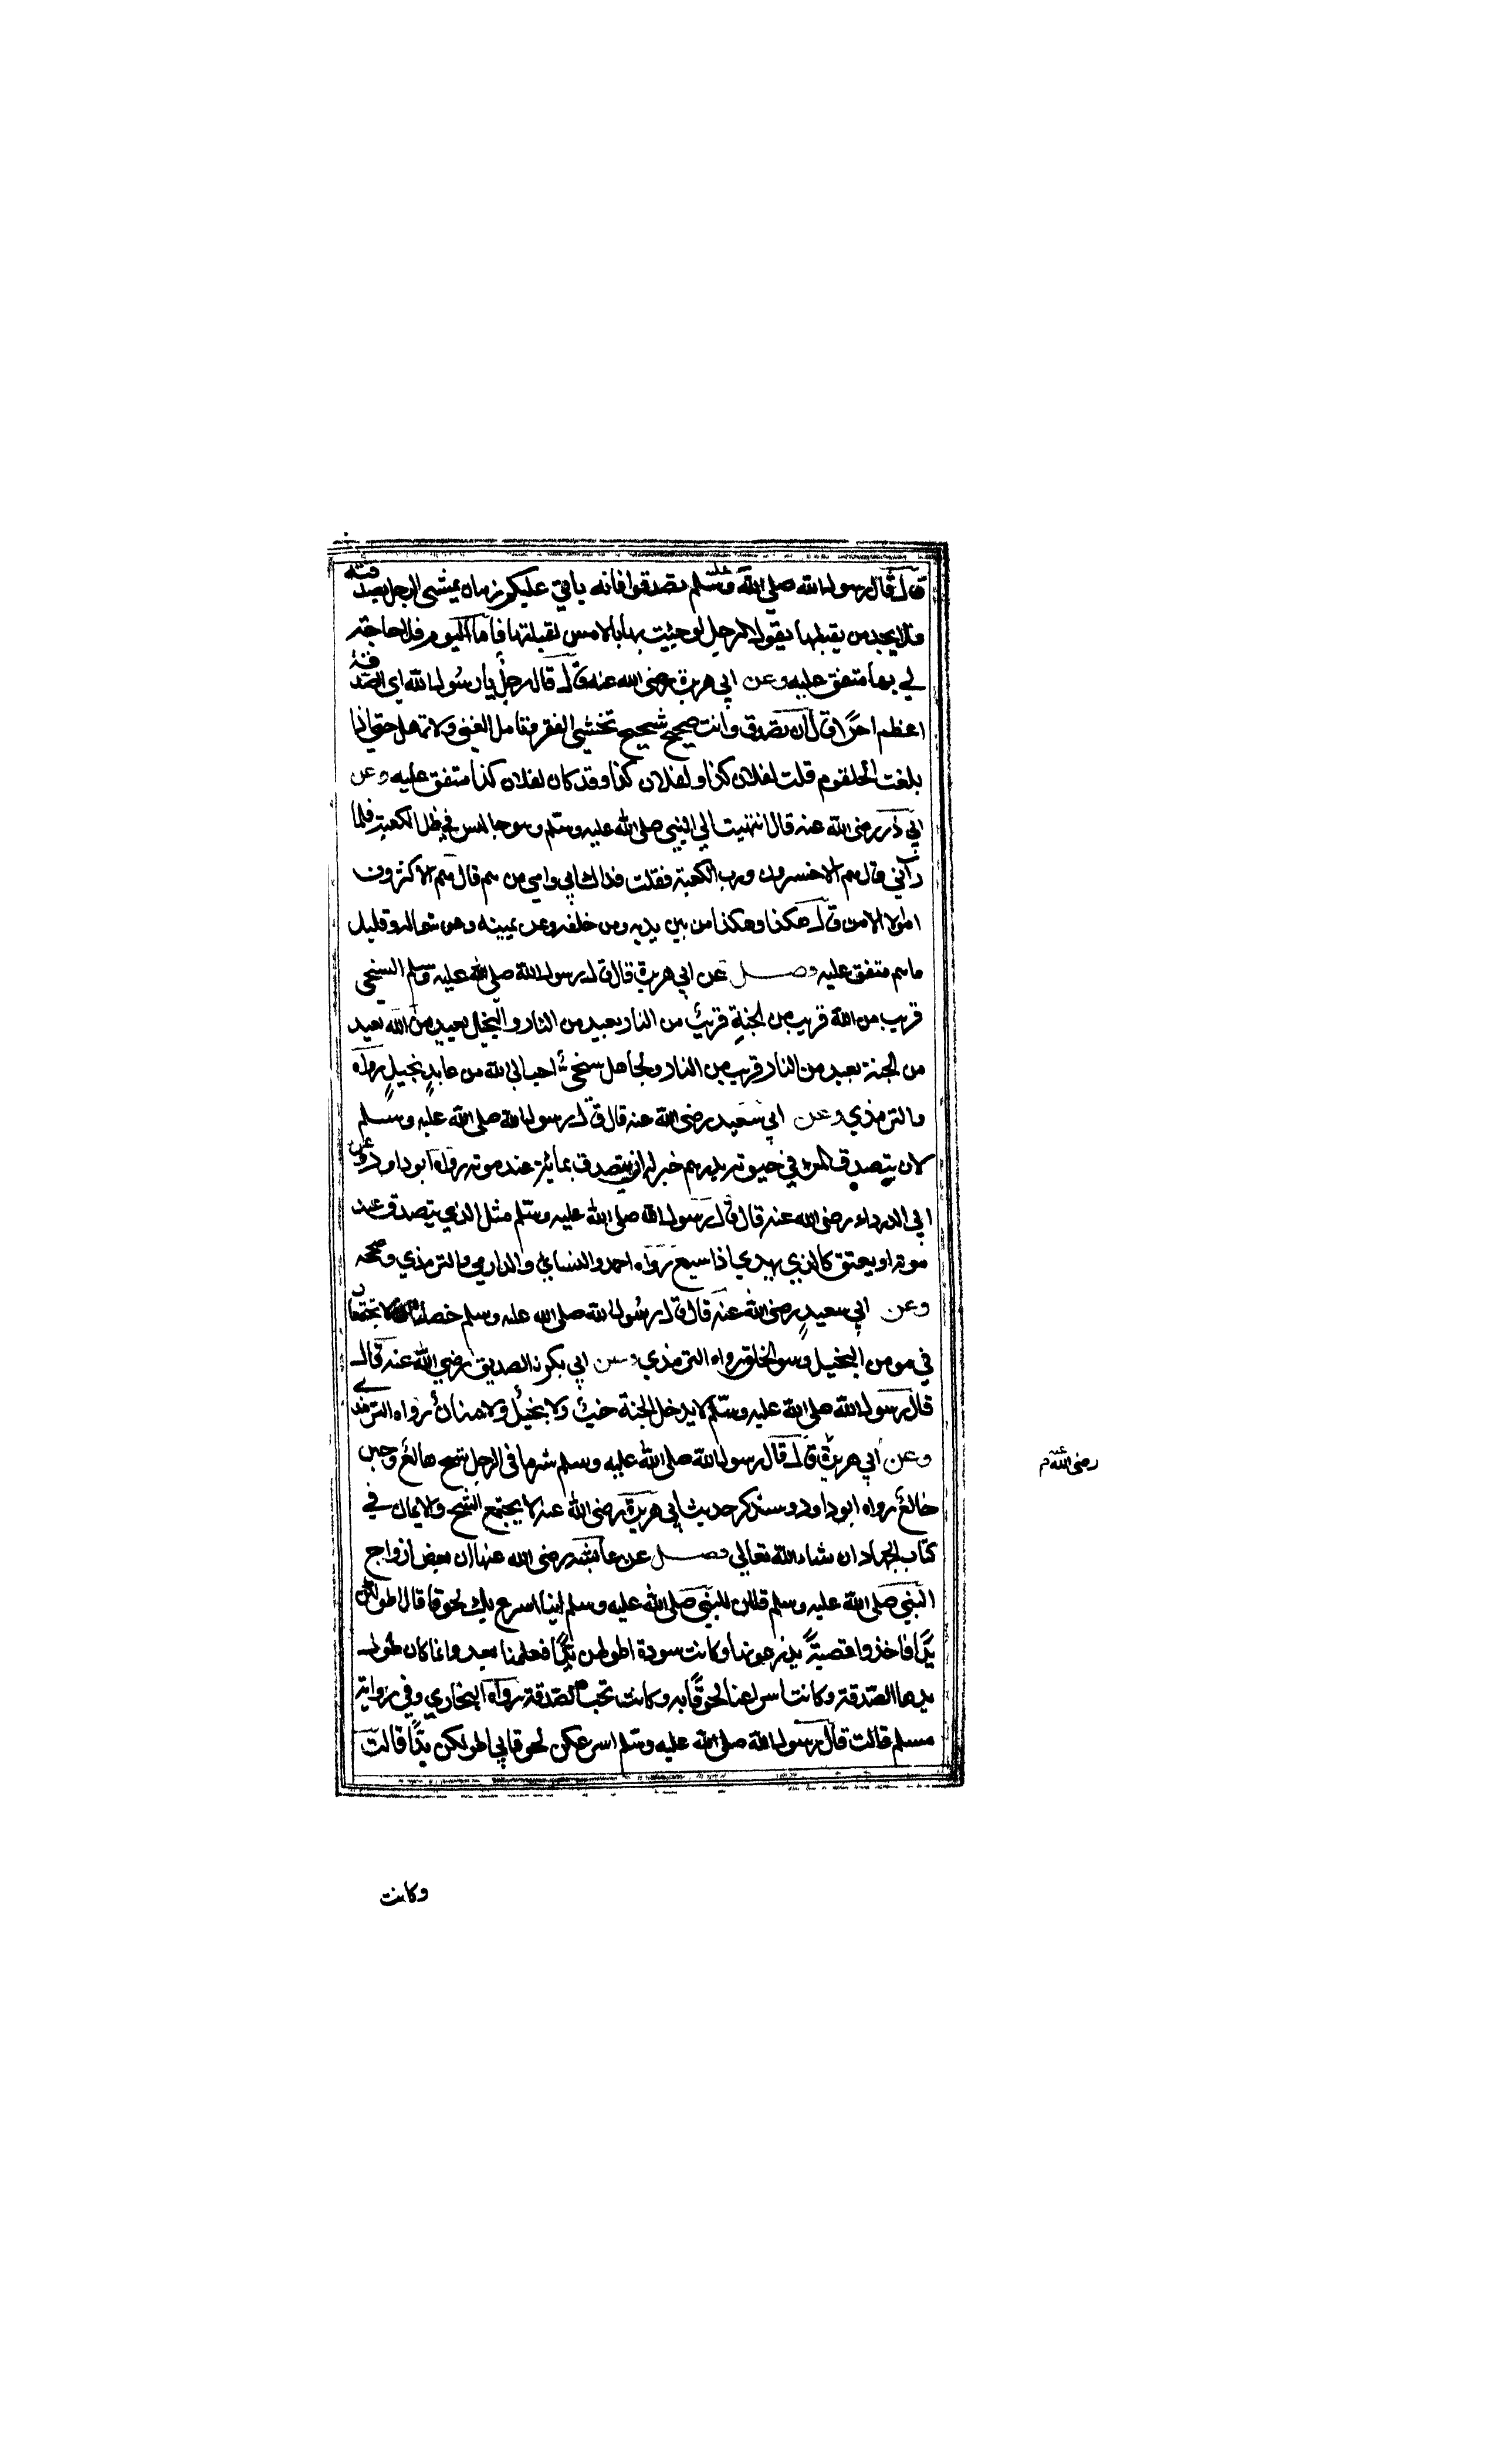 قال قال رسول الله صلى الله عليه وسلم تصدقوا فانه ياتي عليكم زمان يمشي الرجل بصدقته
فلا يجد من يقبلها يقول الرجل لو جئيت بها بالامس لقبلتها فأما اليوم فلا حاجة
لي بها متفق عليه وعن ابي هريرة رضى الله عنه قال قال رجل يا رسول الله اي الصدقة
اعظم اجرًا قال ان تصدق وأنت صحيح شحيح تخشى الفقر وتأمل الغنى ولا تمهل حتى اذا
بلغت الحلقوم قلت لفلان كذا ولفلان كذا وقد كان لفلان كذا متفق عليه وعن
ابي ذر رضى الله عنه قال انتهيت الي النبي صلى الله عليه وسلم وهو جالس في ظل الكعبة فلما
رآني قال هم الاخسرون ورب الكعبة فقلت فداك ابي وامي من هم قال هم الاكثرون
اموالا الا من قال هكذا وهكذا من بين يديه ومن خلفه وعن يمينه وعن شماله وقليل
ما هم متفق عليه فصل عن ابي هريرة قال قال رسول الله صلى الله عليه وسلم السخي
قريب من الله قريب من الجنة قريب من الناس بعيد من النار والبخيل بعيد من الله بعيد
من الجنة بعيد من الناس قريب من النار ولجاهل سخي احب الى الله من عابد بخيل رواه
والترمذي وعن ابي سعيد رضى الله عنه قال قال رسول الله صلى الله عليه وسلم
لان يتصدق المرء في حيوته بدرهم خير له ان يتصدق بمائة عند موته رواه ابو داود وعن
ابي الدرداء رضى الله عنه قال قال رسول الله صلى الله عليه وسلم مثل الذي يتصدق عند
موته او يعتق كالذي يهدي اذا سبع رواه احمد والنسائي والدارمي والترمذي وصححه
وعن ابي سعيد رضى الله عنه قال قال رسول الله صلى الله عليه وسلم خصلتان لا تجتمعان
في مومن البخيل وسو الخلق رواه الترمذي وعن ابي بكر الصديق رضي الله عنه قال
قال رسول الله صلى الله عليه وسلم لا يدخل الجنة خب ولا بخيل ولا منان رواه الترمذي
وعن ابي هريرة قال قال رسول الله صلى الله عليه وسلم شر ما في الرجل شح هالع وجبن
رضى الله عنه م
خالع رواه ابو داود وسنذكر حديث ابي هريرة رضى الله عنه لا يجتمع الشح والايمان في
كتاب الجهاد ان شاء الله تعالي فصل عن عايشه رضى الله عنها ان بعض ازواج
النبي صلى الله عليه وسلم قلن للنبي صلى الله عليه وسلم اينا اسرع بك لحوقا قال اطولكن
يدًا فاخذوا قصبةً يذرعونها وكانت سودة اطولهن يدًا فعلمنا بعد وانما كان طول
يدها الصدقة وكانت اسرعنا لحوقًا به وكانت تحب الصدقة رواه البخاري وفي رواية
مسلم قالت قال رسول الله صلى الله عليه وسلم اسرعكن لحوقا بي اطولكن يدًا قالت
وكانت